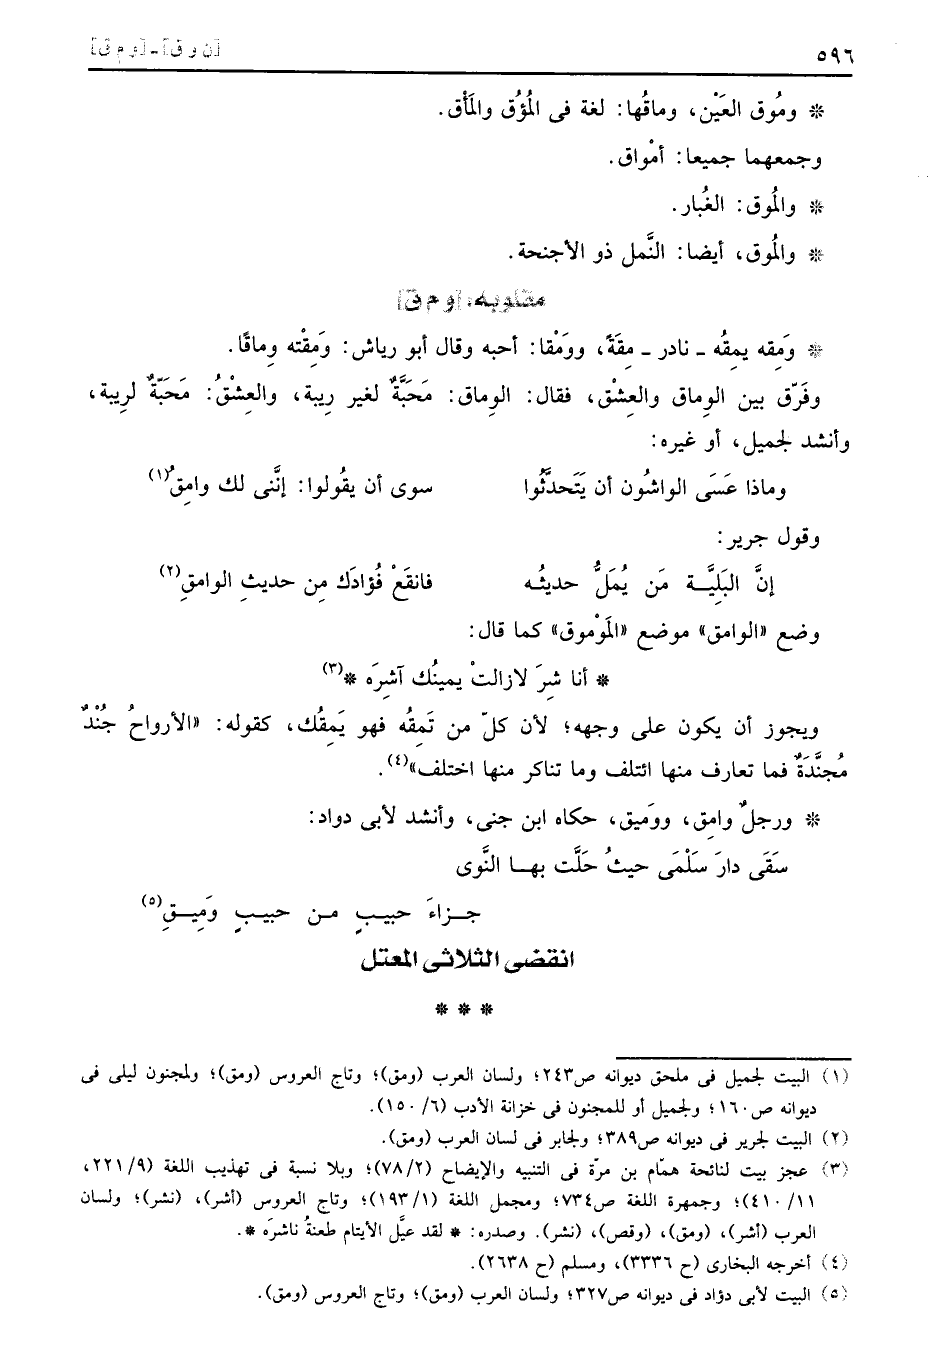 ٥٩٦ [ن و ق] - [و م ق]
* ومُوق العَيْن، وماقُها: لغة فى المُؤُق والمَأْق.
وجمعهما جميعا: أمْواق.
* والمُوق: الغُبار.
* والمُوق، أيضا: النَّمل ذو الأجنحة.
مقلوبه: [و م ق]
* وَمِقه يمِقُه - نادر - مِقَةً، ووَمْقا: أحبه وقال أبو رياش: وَمِقْته وِماقًا.
وفَرّق بين الوِماق والعِشْق، فقال: الوِماق: مَحَبَّةٌ لغير رِيبة، والعِشْقُ: مَحَبّةٌ لرِيبة،
وأنشد لجميل، أو غيره:
وماذا عَسَى الواشُون أن يَتَحدَّثُوا سوى أن يقُولوا: إنَّنى لك وامِقُ(١)
وقول جرير:
إنَّ البَلِيَّة مَن يُمَلُّ حديثُه فانقَعْ فُؤادَك مِن حديثِ الوامقِ(٢)
وضع «الوامق» موضع «المَوْموق» كما قال:
* أنا شِرَ لازالتْ يمينُك آشِرَه *(٣)
ويجوز أن يكون على وجهه؛ لأن كلّ من تَمِقُه فهو يَمِقُك، كقوله: «الأرواحُ جُنْدٌ
مُجنَّدَةٌ فما تعارف منها ائتلف وما تناكر منها اختلف»(٤).
* ورجلٌ وامِق، ووَميق، حكاه ابن جنى، وأنشد لأبى دواد:
سَقَى دارَ سَلْمَى حيثُ حَلَّت بها النَّوى
جزاءَ حبيبٍ من حبيبٍ وَمِيقِ(٥)
انقضى الثلاثى المعتل
* * *
(١) البيت لجميل فى ملحق ديوانه ص٢٤٣؛ ولسان العرب (ومق)؛ وتاج العروس (ومق)؛ ولمجنون ليلى فى
ديوانه ص١٦٠؛ ولجميل أو للمجنون فى خزانة الأدب (٦/ ١٥٠).
(٢) البيت لجرير فى ديوانه ص٣٨٩؛ ولجابر فى لسان العرب (ومق).
(٣) عجز بيت لنائحة همّام بن مرّة فى التنبيه والإيضاح (٧٨/٢)؛ وبلا نسبة فى تهذيب اللغة (٢٢١/٩،
٤١٠/١١)؛ وجمهرة اللغة ص٧٣٤؛ ومجمل اللغة (١٩٣/١)؛ وتاج العروس (أشر)، (نشر)؛ ولسان
العرب (أشر)، (ومق)، (وقص)، (نشر). وصدره: * لقد عيَّل الأيتام طعنةُ ناشرَه *.
(٤) أخرجه البخارى (ح ٣٣٣٦)، ومسلم (ح ٢٦٣٨).
(٥) البيت لأبى دؤاد فى ديوانه ص٣٢٧؛ ولسان العرب (ومق)؛ وتاج العروس (ومق).